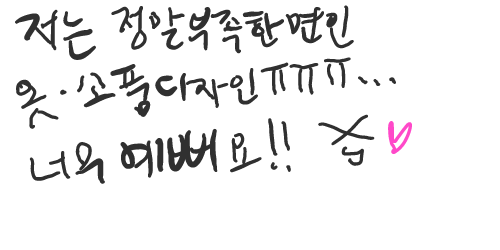 저는 정말부족한면인
옷·소품디자인ㅠㅠㅠ...
너무 예뻐요!!